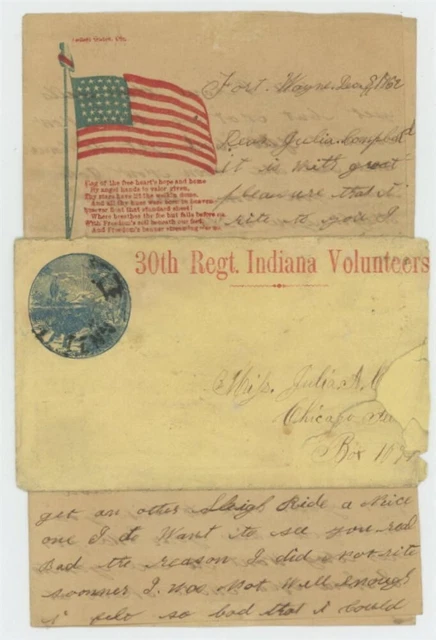 Fort. Wayne. Dec 9 1862
Dear Julia
it is with great
pleasure that i
rite to you I
Flag of the free heart's hope and home
By angel hands to valor given,
Thy stars have lit the welkin dome,
And all thy hues were born in heaven
Forever float that standard sheet!
Where breathes the foe but falls before us,
With Freedom's soil beneath our feet,
And Freedom's banner streaming o'er us
30th Regt. Indiana Volunteers
Miss. Julia A.
Chicago
Box
get an other Sleigh Ride a Nice
one I do Want to see you real
Bad the reason I did not rite
soonner I. was Not Well enough
i felo so bad that i could